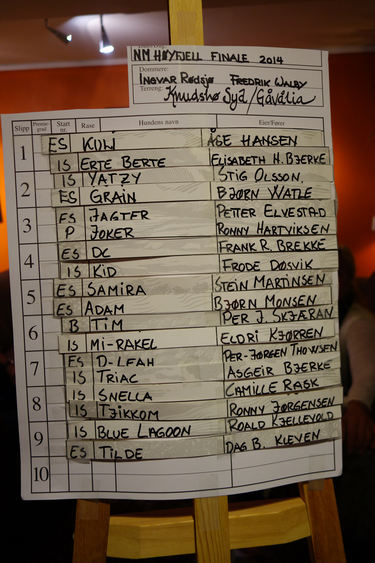 NM HØYFJELL FINALE 2014
Dommere:
INGVAR RØDSJØ FREDRIK WALBY
Terreng: Knudshø Syd/Gåvålia
Slipp Premie-grad Start nr. Rase Hundens navn Eier/Fører
1 ES KULI ÅGE HANSEN
IS ERTE BERTE ELISABETH H. BJERKE
2 IS YATZY STIG OLSSON
ES GRAIN BJØRN WATLE
3 ES JAGTER PETTER ELVESTAD
P JOKER RONNY HARTVIKSEN
4 ES DC FRANK R. BREKKE
IS KID FRODE DØSVIK
5 ES SAMIRA STEIN MARTINSEN
ES ADAM BJØRN MONSEN
6 B TIM PER J. SKJÆRAN
IS MI-RAKEL ELDRI KJØRREN
7 ES D-LEAH PER-JØRGEN THOWSEN
IS TRIAC ASGEIR BJERKE
8 IS SNELLA CAMILLE RASK
IS TJIKKOM RONNY JØRGENSEN
9 IS BLUE LAGOON ROALD KJELLEVOLD
ES TILDE DAG B. KLEVEN
10